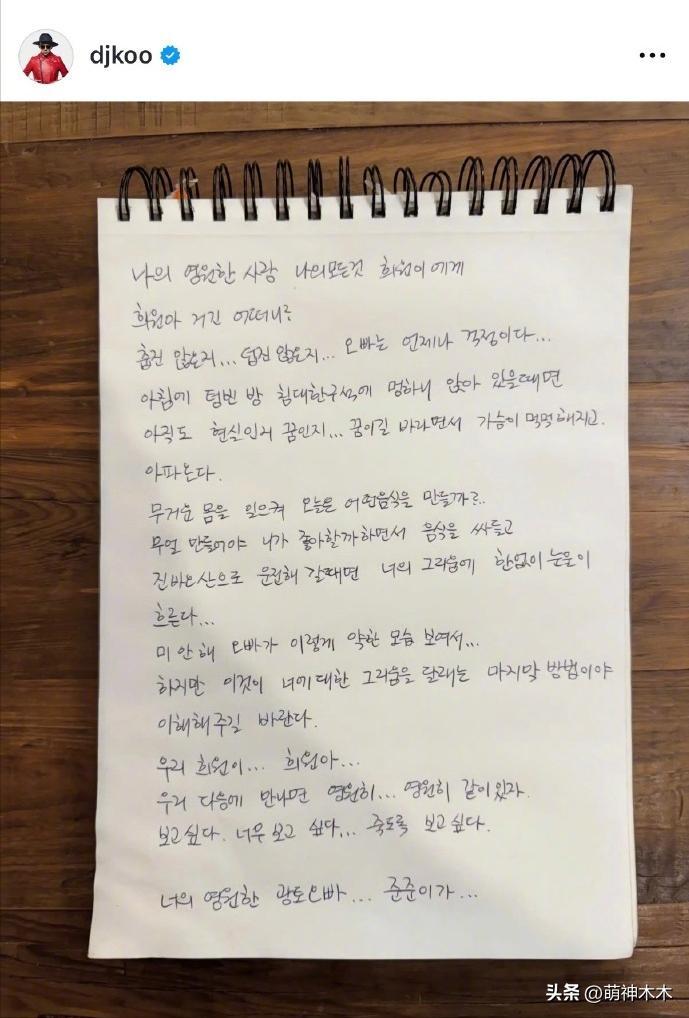 djkoo
나의 영원한 사랑 나의모든것 희원이에게
희원아 거긴 어떠니?
춥진 않은지... 덥진 않은지... 오빠는 언제나 걱정이다...
아침에 텅빈 방 침대한구석에 멍하니 앉아 있을때면
아직도 현실인지 꿈인지... 꿈이길 바라면서 가슴이 먹먹해지고.
아파온다.
무거운 몸을 일으켜 오늘은 어떤음식을 만들까?..
무얼 만들어야 니가 좋아할까하면서 음식을 싸들고
진바오산으로 운전해 갈때면 너의 그리움에 한없이 눈물이
흐른다...
미안해 오빠가 이렇게 약한 모습 보여서...
하지만 이것이 너에대한 그리움을 달래는 마지막 방법이야
이해해주길 바란다.
우리 희원이... 희원아...
우리 다음에 만나면 영원히... 영원히 같이있자.
보고싶다. 너무 보고 싶다... 죽도록 보고싶다.
너의 영원한 광토오빠... 준준이가...
头条 @萌神木木